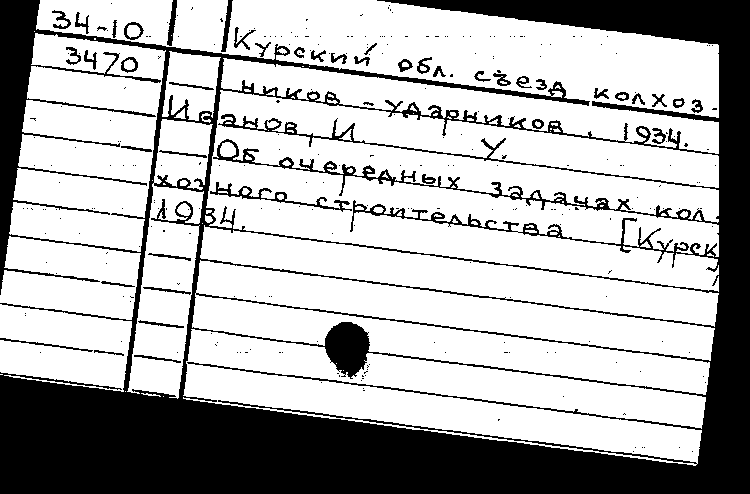 34-10
3470
Курский обл. съезд колхоз-
ников - ударников. 1934.
Иванов, И. У.
Об очередных заданах кол-
хозного строительства [Курск,
1934.